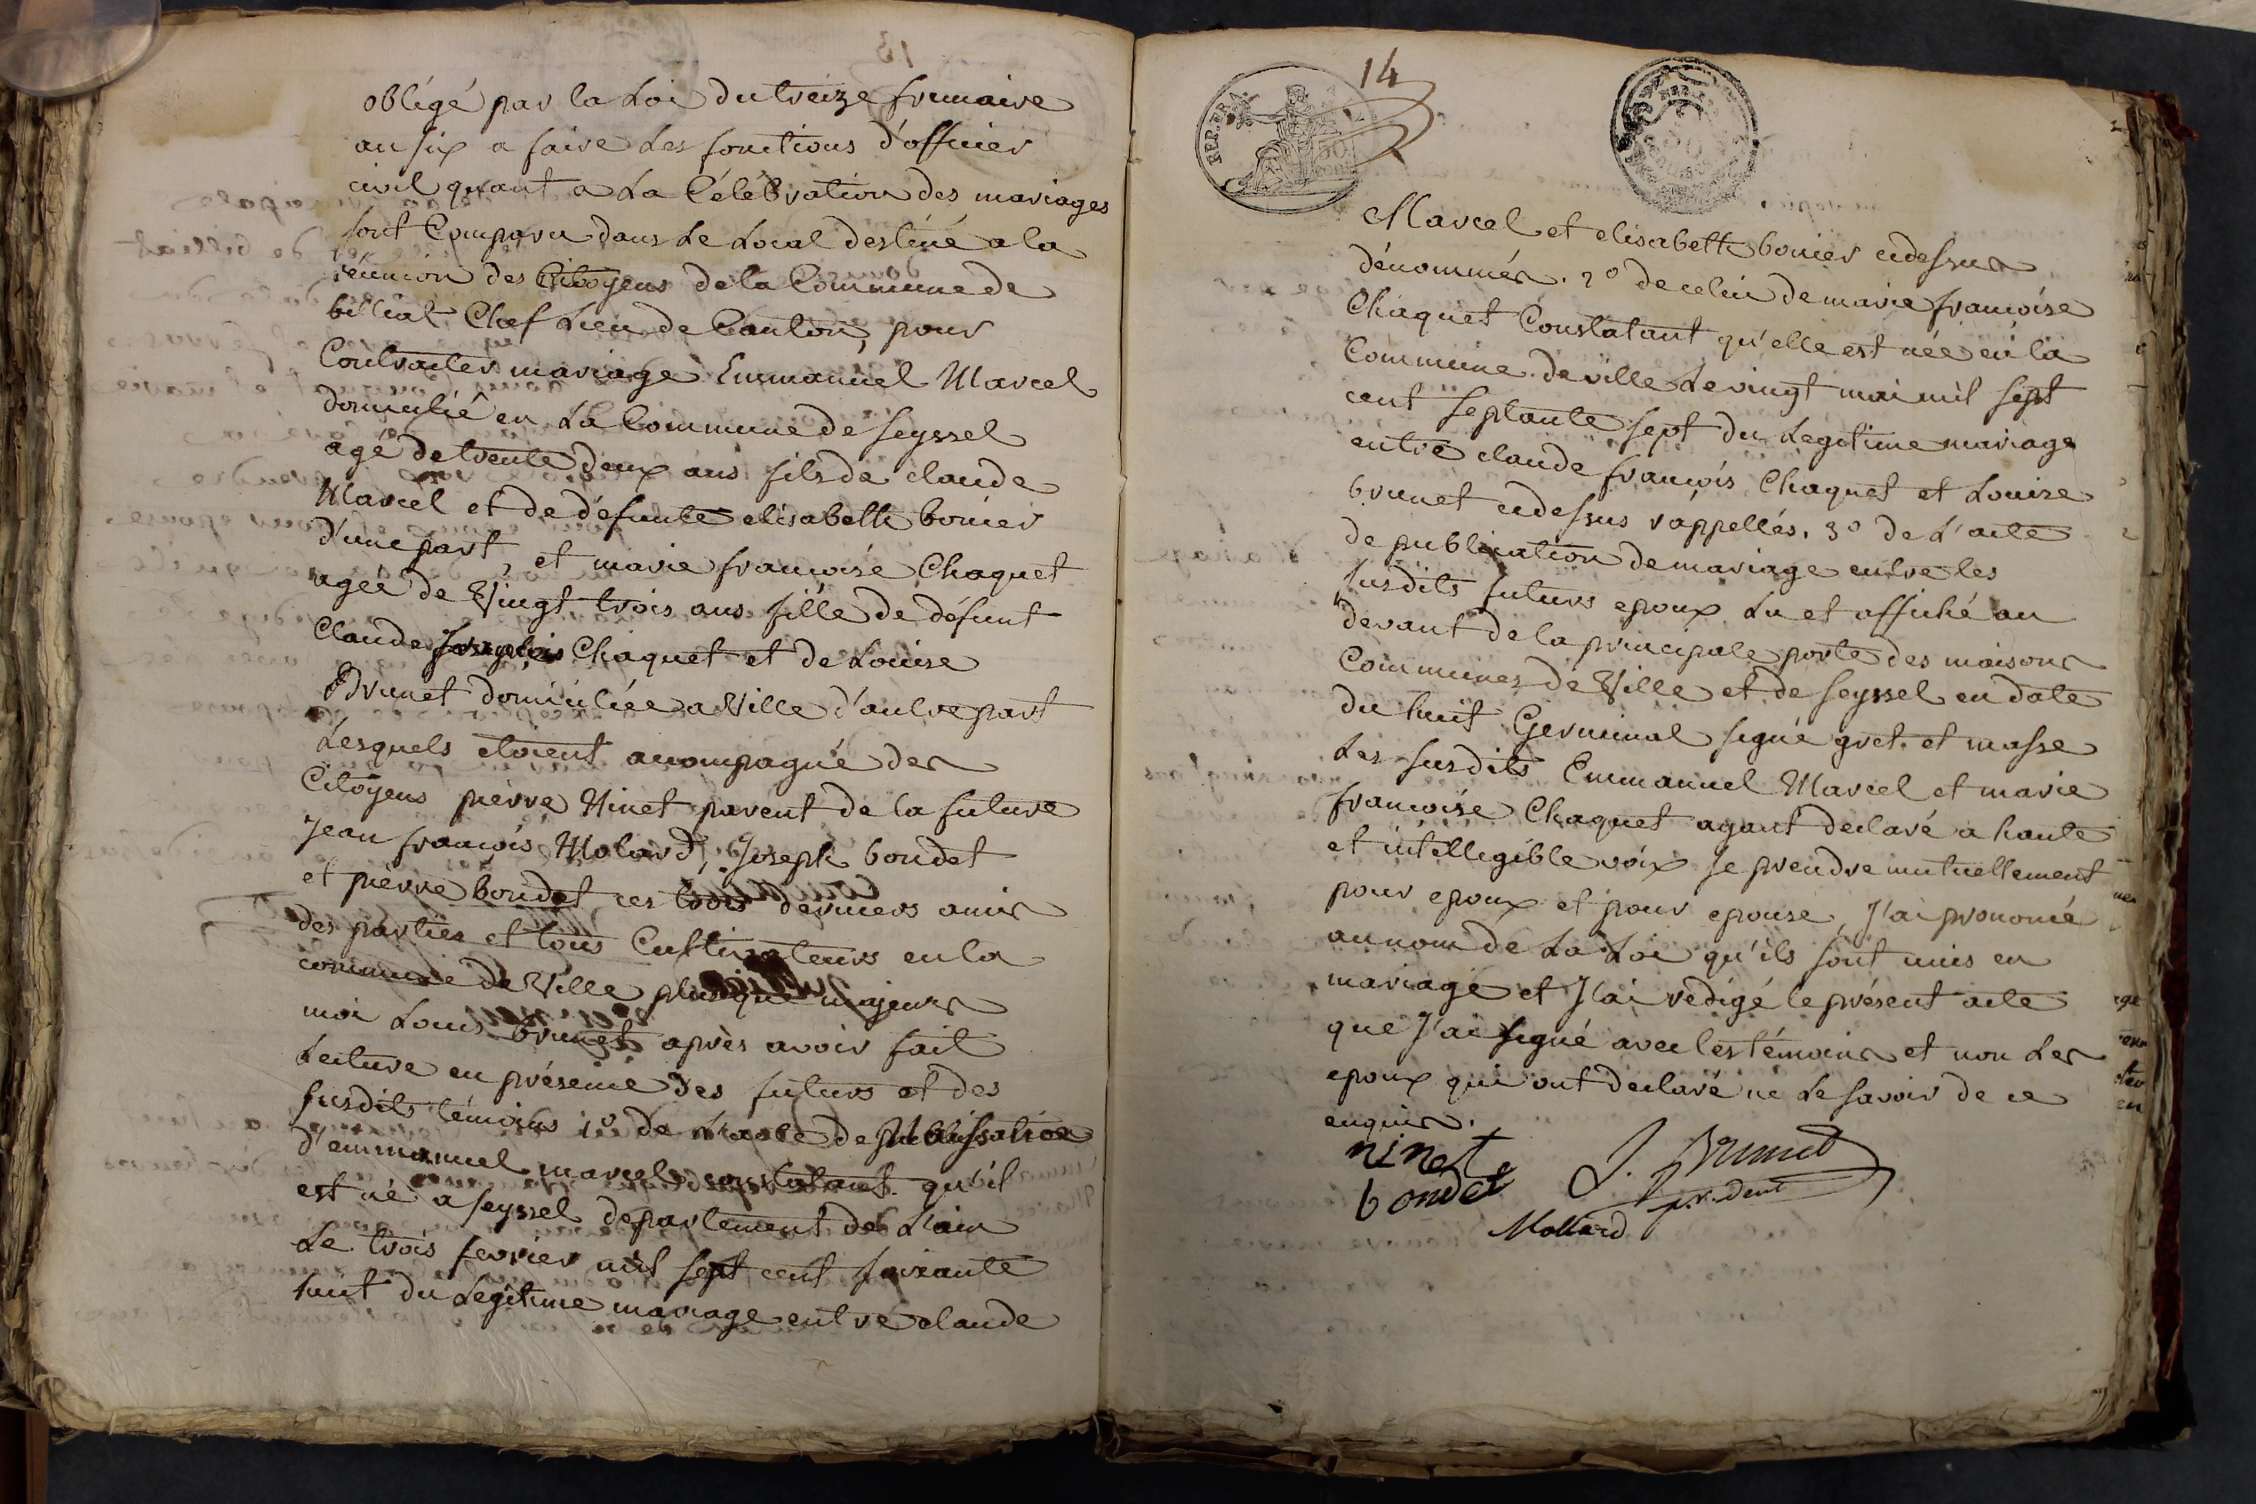 obligé par la Loi du treize frimaire
an six a faire Les fonctions d'officier
civil quant a La Célébration des mariages
sont Comparu dans Le Local destiné a la
réunion des Citoyens de la Commune de
billiat Chef Lieu de Canton, pour
Contracter mariage Emmanuel Marcel
domicilié en La Commune de Seyssel
agé de trente deux ans fils de claude
Marcel et de défunte elisabeth bonier
d'une part, et marie françoise Chaquet
agée de Vingt trois ans fille de défunt
Claude françois Chaquet et de Louise
Brunet domiciliée a Ville d'autre part
Lesquels etoient accompagné des
Citoyens pierre Ninet parent de la future
Jean françois Molard, Joseph bondet
et pierre bondet ces trois derniers amis
des parties et tous Cultivateurs en la
commune de Ville plus que majeurs
moi Louis brunet après avoir fait
Lecture en présence des futurs et des
susdits témoins 1º de L'acte de
d'emmanuel marcel constatant qu'il
est né a Seyssel departement de L'ain
Le trois fevrier mil sept cent soixante
huit du Légitime mariage entre claude
14
REP. FRA.
50
cent
Marcel et elisabeth bonier cidessus
dénommés. 2º de celui de marie françoise
Chaquet Constatant qu'elle est née en la
Commune de ville Le vingt mai mil sept
cent septante sept du Legitime mariage
entre claude françois Chaquet et Louise
brunet cidessus rappellés. 3º de L'acte
de publication de mariage entre les
susdits futurs epoux Lu et affiché au
devant de la principale porte des maisons
Communes de Ville et de Seyssel en date
du huit Germinal signé gret. et masse
Les susdits Emmanuel Marcel et marie
françoise Chaquet ayant declaré a haute
et intellegible voix se prendre mutuellement
pour epoux et pour epouse, J'ai prononcé
au nom de La Loi qu'ils sont unis en
mariage et J'ai rédigé le présent acte
que J'ai signé avec les témoins et non Les
epoux qui ont declaré ne Le savoir de ce
enquis.
ninet J. Brunet
bondet pr.dent
Mollard